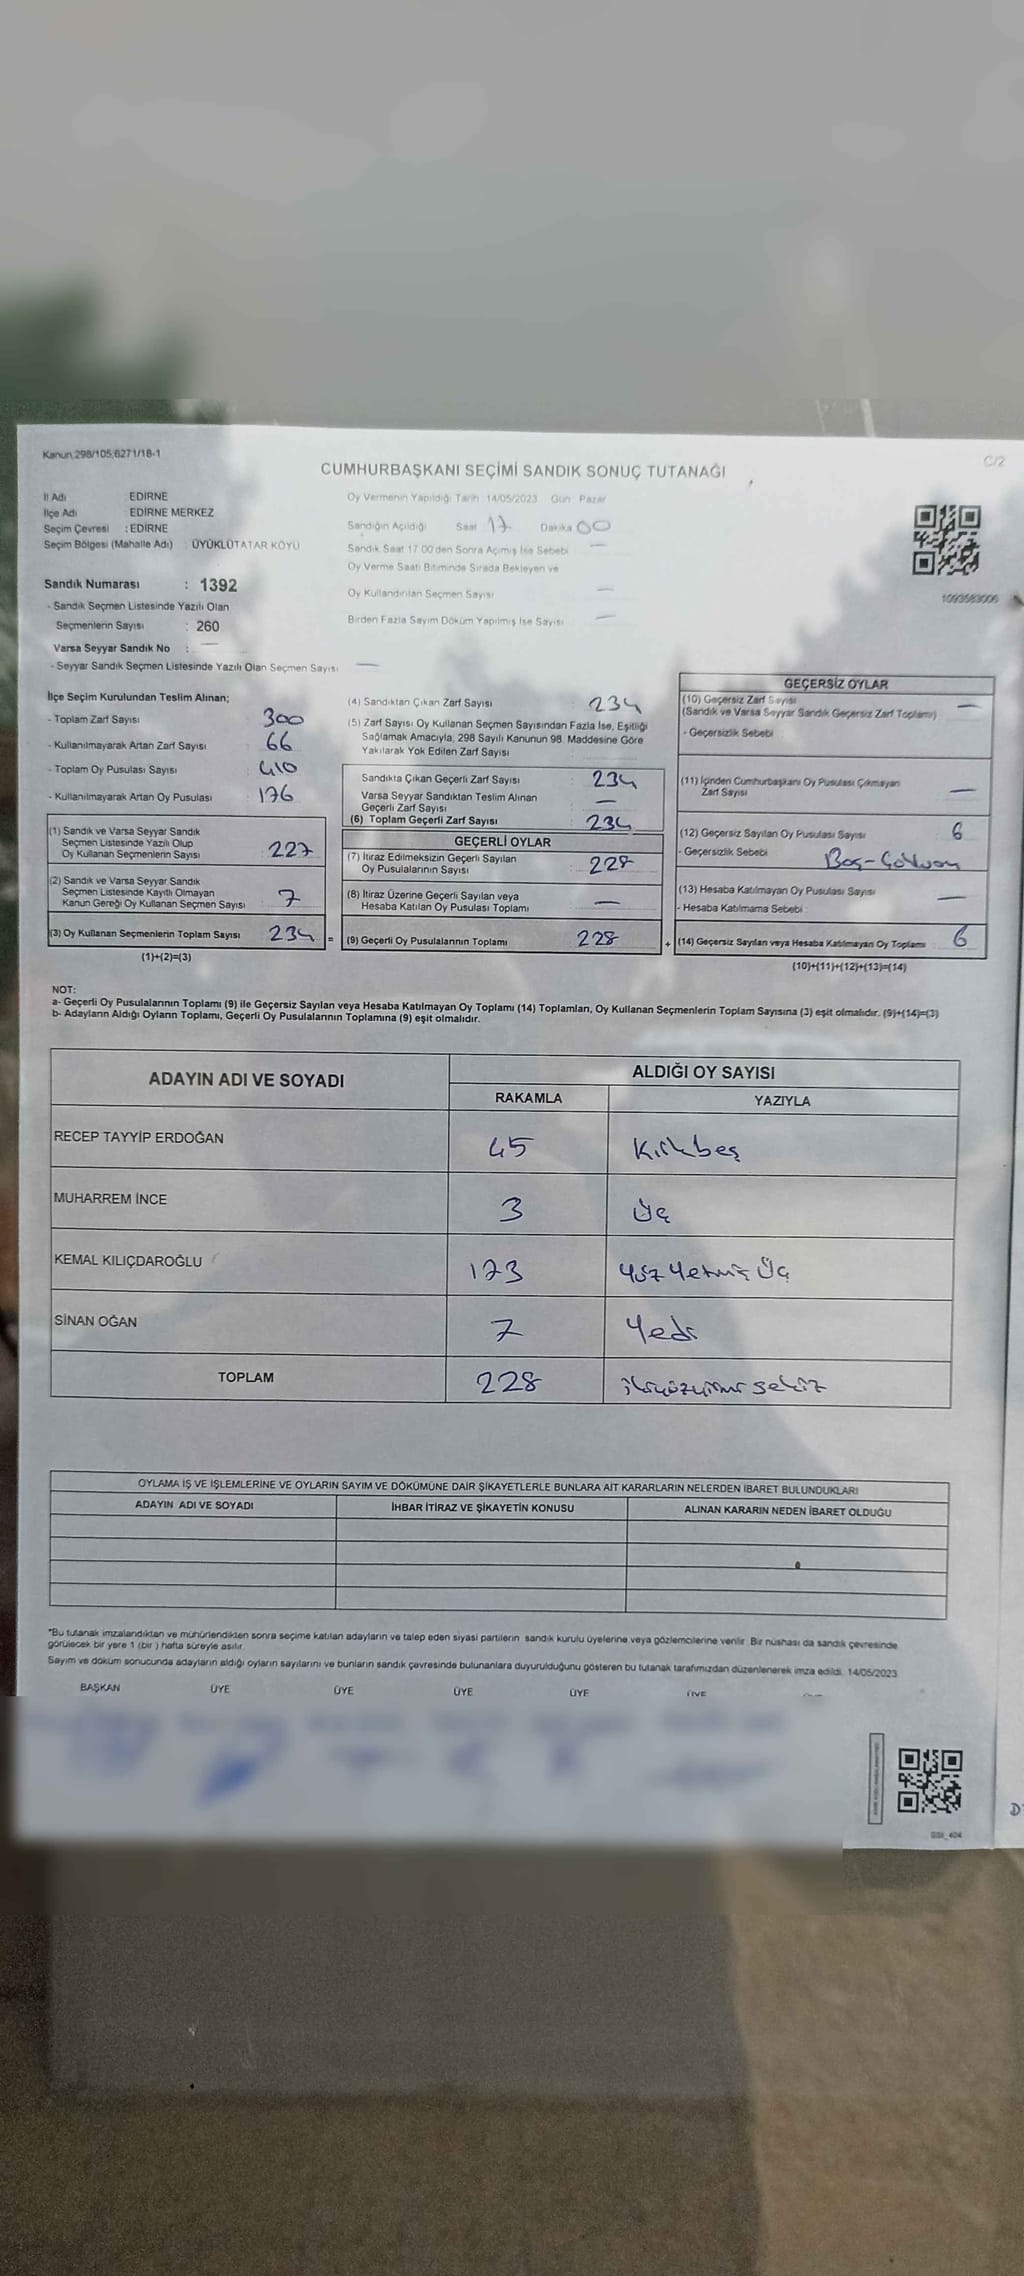 Kanun 298/105,6271/18-1
C/2
CUMHURBAŞKANI SEÇİMİ SANDIK SONUÇ TUTANAĞI
İl Adı EDİRNE
İlçe Adı EDİRNE MERKEZ
Seçim Çevresi : EDİRNE
Seçim Bölgesi (Mahalle Adı) : ÜYÜKLÜTATAR KÖYÜ
Oy Vermenin Yapıldığı Tarih : 14/05/2023 Gün : Pazar
Sandığın Açıldığı Saat 17 Dakika 00
Sandık Saat 17:00'den Sonra Açılmış İse Sebebi —
Oy Verme Saati Bitiminde Sırada Bekleyen ve
Oy Kullandırılan Seçmen Sayısı —
Birden Fazla Sayım Döküm Yapılmış İse Sayısı —
1093583006
Sandık Numarası : 1392
- Sandık Seçmen Listesinde Yazılı Olan
Seçmenlerin Sayısı : 260
Varsa Seyyar Sandık No : —
- Seyyar Sandık Seçmen Listesinde Yazılı Olan Seçmen Sayısı —
İlçe Seçim Kurulundan Teslim Alınan;
- Toplam Zarf Sayısı 300
- Kullanılmayarak Artan Zarf Sayısı 66
- Toplam Oy Pusulası Sayısı 410
- Kullanılmayarak Artan Oy Pusulası 176
(1) Sandık ve Varsa Seyyar Sandık
Seçmen Listesinde Yazılı Olup
Oy Kullanan Seçmenlerin Sayısı : 227
(2) Sandık ve Varsa Seyyar Sandık
Seçmen Listesinde Kayıtlı Olmayan
Kanun Gereği Oy Kullanan Seçmen Sayısı 7
(3) Oy Kullanan Seçmenlerin Toplam Sayısı 234 =
(1)+(2)=(3)
(4) Sandıktan Çıkan Zarf Sayısı 234
(5) Zarf Sayısı Oy Kullanan Seçmen Sayısından Fazla İse, Eşitliği
Sağlamak Amacıyla, 298 Sayılı Kanunun 98. Maddesine Göre
Yakılarak Yok Edilen Zarf Sayısı
Sandıkta Çıkan Geçerli Zarf Sayısı : 234
Varsa Seyyar Sandıktan Teslim Alınan
Geçerli Zarf Sayısı —
(6) Toplam Geçerli Zarf Sayısı : 234
GEÇERLİ OYLAR
(7) İtiraz Edilmeksizin Geçerli Sayılan
Oy Pusulalarının Sayısı : 228
(8) İtiraz Üzerine Geçerli Sayılan veya
Hesaba Katılan Oy Pusulası Toplamı —
(9) Geçerli Oy Pusulalarının Toplamı 228 +
GEÇERSİZ OYLAR
(10) Geçersiz Zarf Sayısı —
(Sandık ve Varsa Seyyar Sandık Geçersiz Zarf Toplamı)
- Geçersizlik Sebebi
(11) İçinden Cumhurbaşkanı Oy Pusulası Çıkmayan
Zarf Sayısı —
(12) Geçersiz Sayılan Oy Pusulası Sayısı 6
- Geçersizlik Sebebi Boş-
(13) Hesaba Katılmayan Oy Pusulası Sayısı —
- Hesaba Katılmama Sebebi :
(14) Geçersiz Sayılan veya Hesaba Katılmayan Oy Toplamı 6
(10)+(11)+(12)+(13)=(14)
NOT:
a- Geçerli Oy Pusulalarının Toplamı (9) ile Geçersiz Sayılan veya Hesaba Katılmayan Oy Toplamı (14) Toplamları, Oy Kullanan Seçmenlerin Toplam Sayısına (3) eşit olmalıdır. (9)+(14)=(3)
b- Adayların Aldığı Oyların Toplamı, Geçerli Oy Pusulalarının Toplamına (9) eşit olmalıdır.
ADAYIN ADI VE SOYADI ALDIĞI OY SAYISI
RAKAMLA YAZIYLA
RECEP TAYYİP ERDOĞAN 45 Kırkbeş
MUHARREM İNCE 3 Üç
KEMAL KILIÇDAROĞLU 173 Yüz Yetmiş Üç
SİNAN OĞAN 7 Yedi
TOPLAM 228 ikiyüzyirmi sekiz
OYLAMA İŞ VE İŞLEMLERİNE VE OYLARIN SAYIM VE DÖKÜMÜNE DAİR ŞİKAYETLERLE BUNLARA AİT KARARLARIN NELERDEN İBARET BULUNDUKLARI
ADAYIN ADI VE SOYADI İHBAR İTİRAZ VE ŞİKAYETİN KONUSU ALINAN KARARIN NEDEN İBARET OLDUĞU
*Bu tutanak imzalandıktan ve mühürlendikten sonra seçime katılan adayların ve talep eden siyasi partilerin sandık kurulu üyelerine veya gözlemcilerine verilir. Bir nüshası da sandık çevresinde
görülecek bir yere 1 (bir) hafta süreyle asılır.
Sayım ve döküm sonucunda adayların aldığı oyların sayılarını ve bunların sandık çevresinde bulunanlara duyurulduğunu gösteren bu tutanak tarafımızdan düzenlenerek imza edildi. 14/05/2023
BAŞKAN ÜYE ÜYE ÜYE ÜYE ÜYE